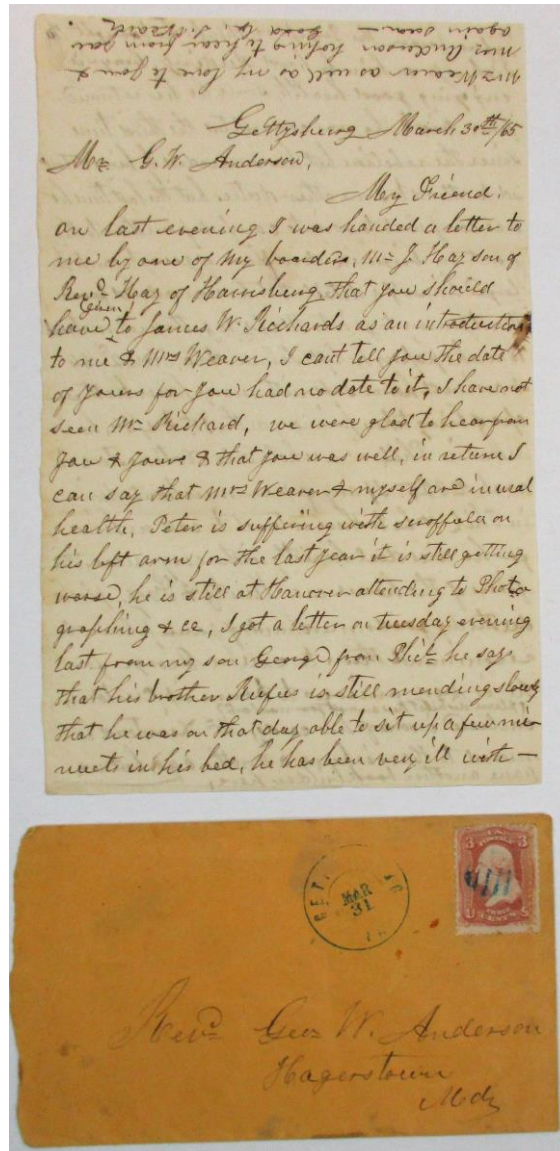 Mrs Weaver as well as my love to you &
Mrs Anderson hoping to hear from you
again soon —
Gettysburg March 30th/65
Mr G. W. Anderson,
My Friend.
on last evening I was handed a letter to
me by one of my boarders, Mr J. Hay son of
Revd Hay of Harrisburg, that you should
have given to James W. Richards as an introduction
to me & Mrs Weaver, I cant tell you the date
of yours for you had no date to it, I have not
seen Mr Richard, we were glad to hear from
you & yours & that you was well, in return I
can say that Mrs Weaver & myself are in usal
health, Peter is suffering with scroffula on
his left arm for the last year it is still getting
worse, he is still at Hanover attending to Photo
graphing & cc, I got a letter on tuesday evening
last from my son George from Phila he says
that his brother Rufus is still mending slowly
that he was on that day able to sit up a few mi-
nuets in his bed, he has been very ill with —
MAR
31
U.S. POSTAGE
3 3
THREE
CENTS
Revd Geo W. Anderson
Hagerstown
Md